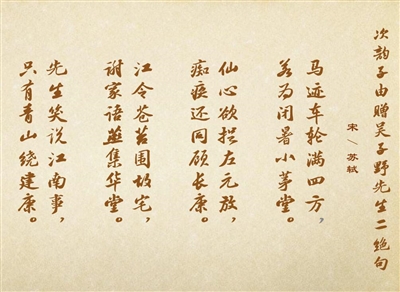 次韵子由赠吴子野先生二绝句
宋/苏轼
马迹车轮满四方，
若为闭暑小茅堂。
仙心欲捉左元放，
痴疾还同顾长康。
江令苍苔围故宅，
谢家语燕集华堂。
先生笑说江南事，
只有青山绕建康。